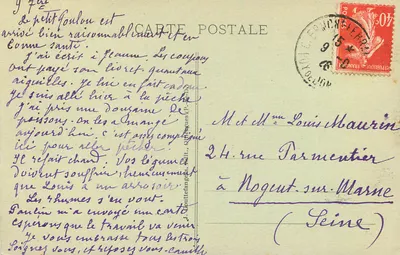 9 7bre
CARTE POSTALE
Le petit Goulou est
arrivé bien raisonnablement et en
bonne santé.
J'ai écrit à Jeanne. Les coupons
ont payé son livret, quant aux
aiguilles. Je lui en fait cadeau
Je suis allé hier à la pêche
J'ai pris une douzaine de
poissons. on les a mangé
aujourd'hui, c'est
ici pour aller pêcher.
Il refait chaud. Vos légumes
doivent souffrir, heureusement
que Louis a un arrosoir.
Les rhumes s'en vont.
Paulin m'a envoyé une carte
Esperons que le travail va venir
Je vous embrasse tous les trois
Soignez vous, et reposez vous
M et Mme Louis Maurin
24 rue Parmentier
à Nogent-sur-Marne
(Seine)